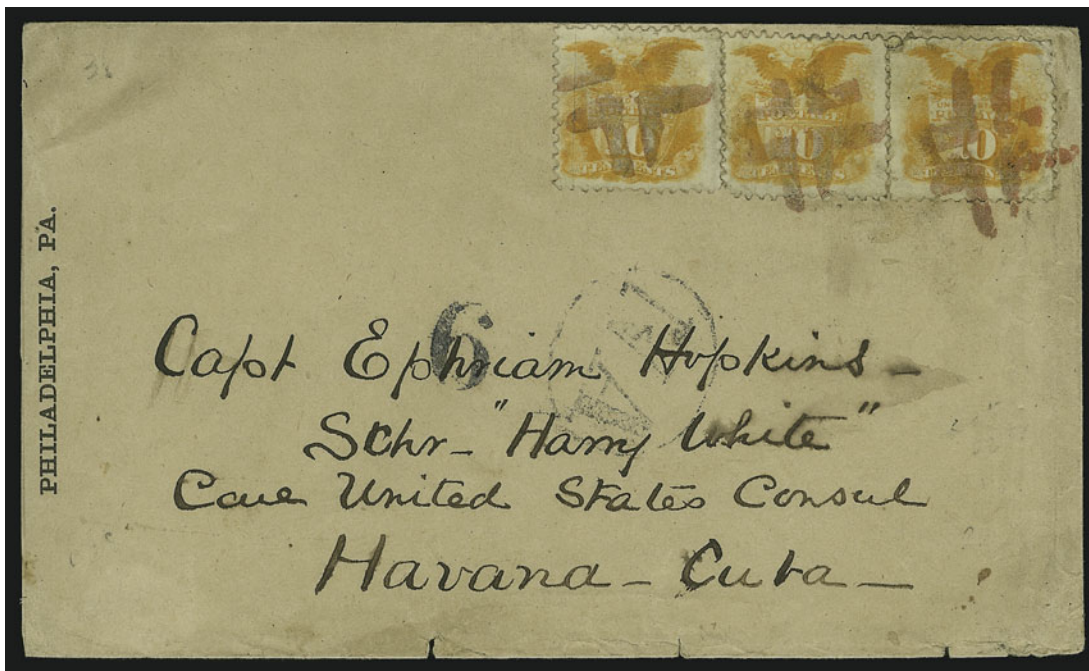 PHILADELPHIA, PA.
6
Capt Ephriam Hopkins -
Schr - "Harry White"
Care United States Consul
Havana - Cuba -